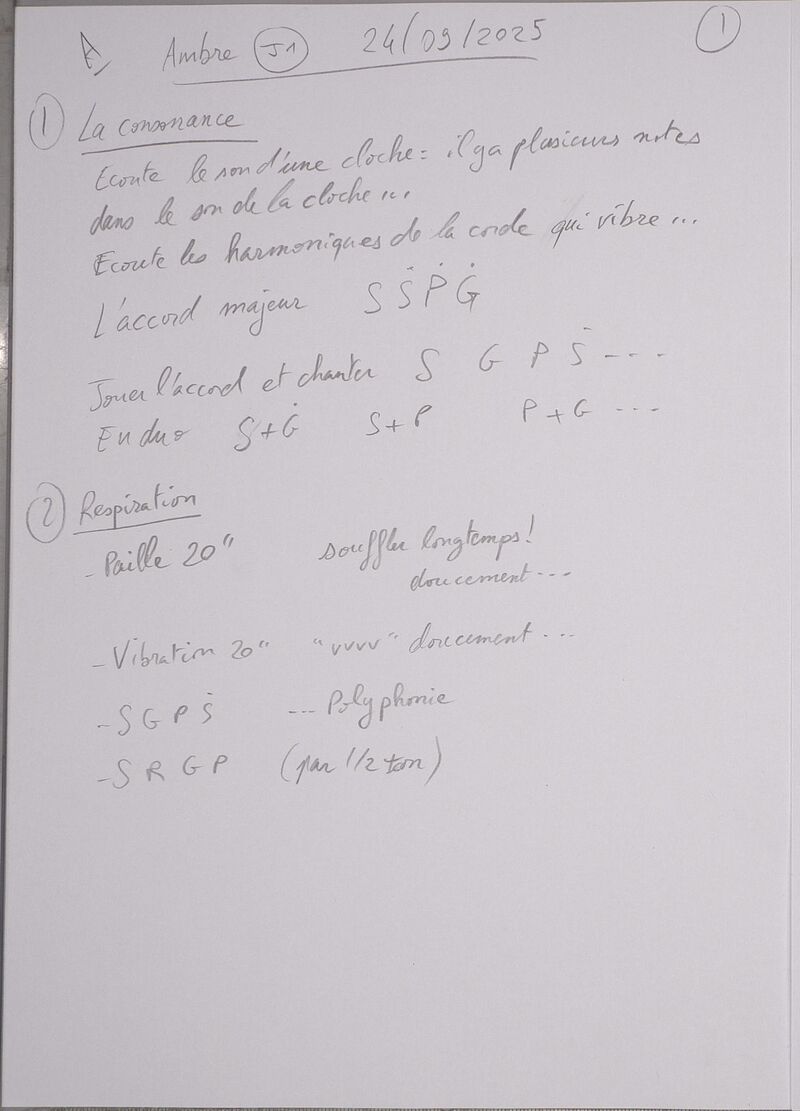 A Ambre J1 24/09/2025 1
1 La consonnance
Ecoute le son d'une cloche : il y a plusieurs notes
dans le son de la cloche...
Ecoute les harmoniques de la corde qui vibre...
L'accord majeur S Ṡ Ṗ Ġ
Jouer l'accord et chanter S G P Ṡ ---
En duo S+Ġ S+P P+G ---
2 Respiration
- Paille 20" souffler longtemps!
doucement ---
- Vibration 20" "vvvv" doucement ---
- S G P Ṡ --- Polyphonie
- S R G P (par 1/2 ton)